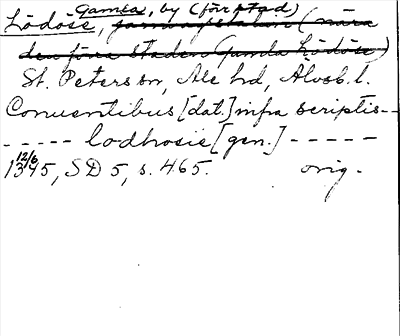 Gamla, by (förstad)
Lödöse, järnvägsstation (nära
den förra staden Gamla Lödöse)
St. Peters sn, Ale hd, Älvsb. l.
Conuentibus [dat.] infra scriptis--
----- lodhosie [gen.] -----
12/6
1345, SD 5, s. 465. orig.